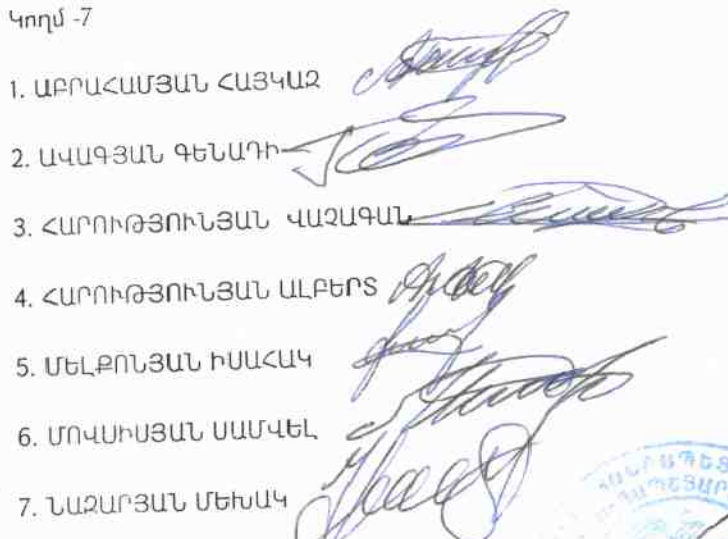 Կողմ -7
1. ԱԲՐԱՀԱՄՅԱՆ ՀԱՅԿԱԶ
2. ԱՎԱԳՅԱՆ ԳԵՆԱԴԻ
3. ՀԱՐՈՒԹՅՈՒՆՅԱՆ ՎԱՉԱԳԱՆ
4. ՀԱՐՈՒԹՅՈՒՆՅԱՆ ԱԼԲԵՐՏ
5. ՄԵԼՔՈՆՅԱՆ ԻՍԱՀԱԿ
6. ՄՈՎՍԻՍՅԱՆ ՍԱՄՎԵԼ
7. ՆԱԶԱՐՅԱՆ ՄԵԽԱԿ